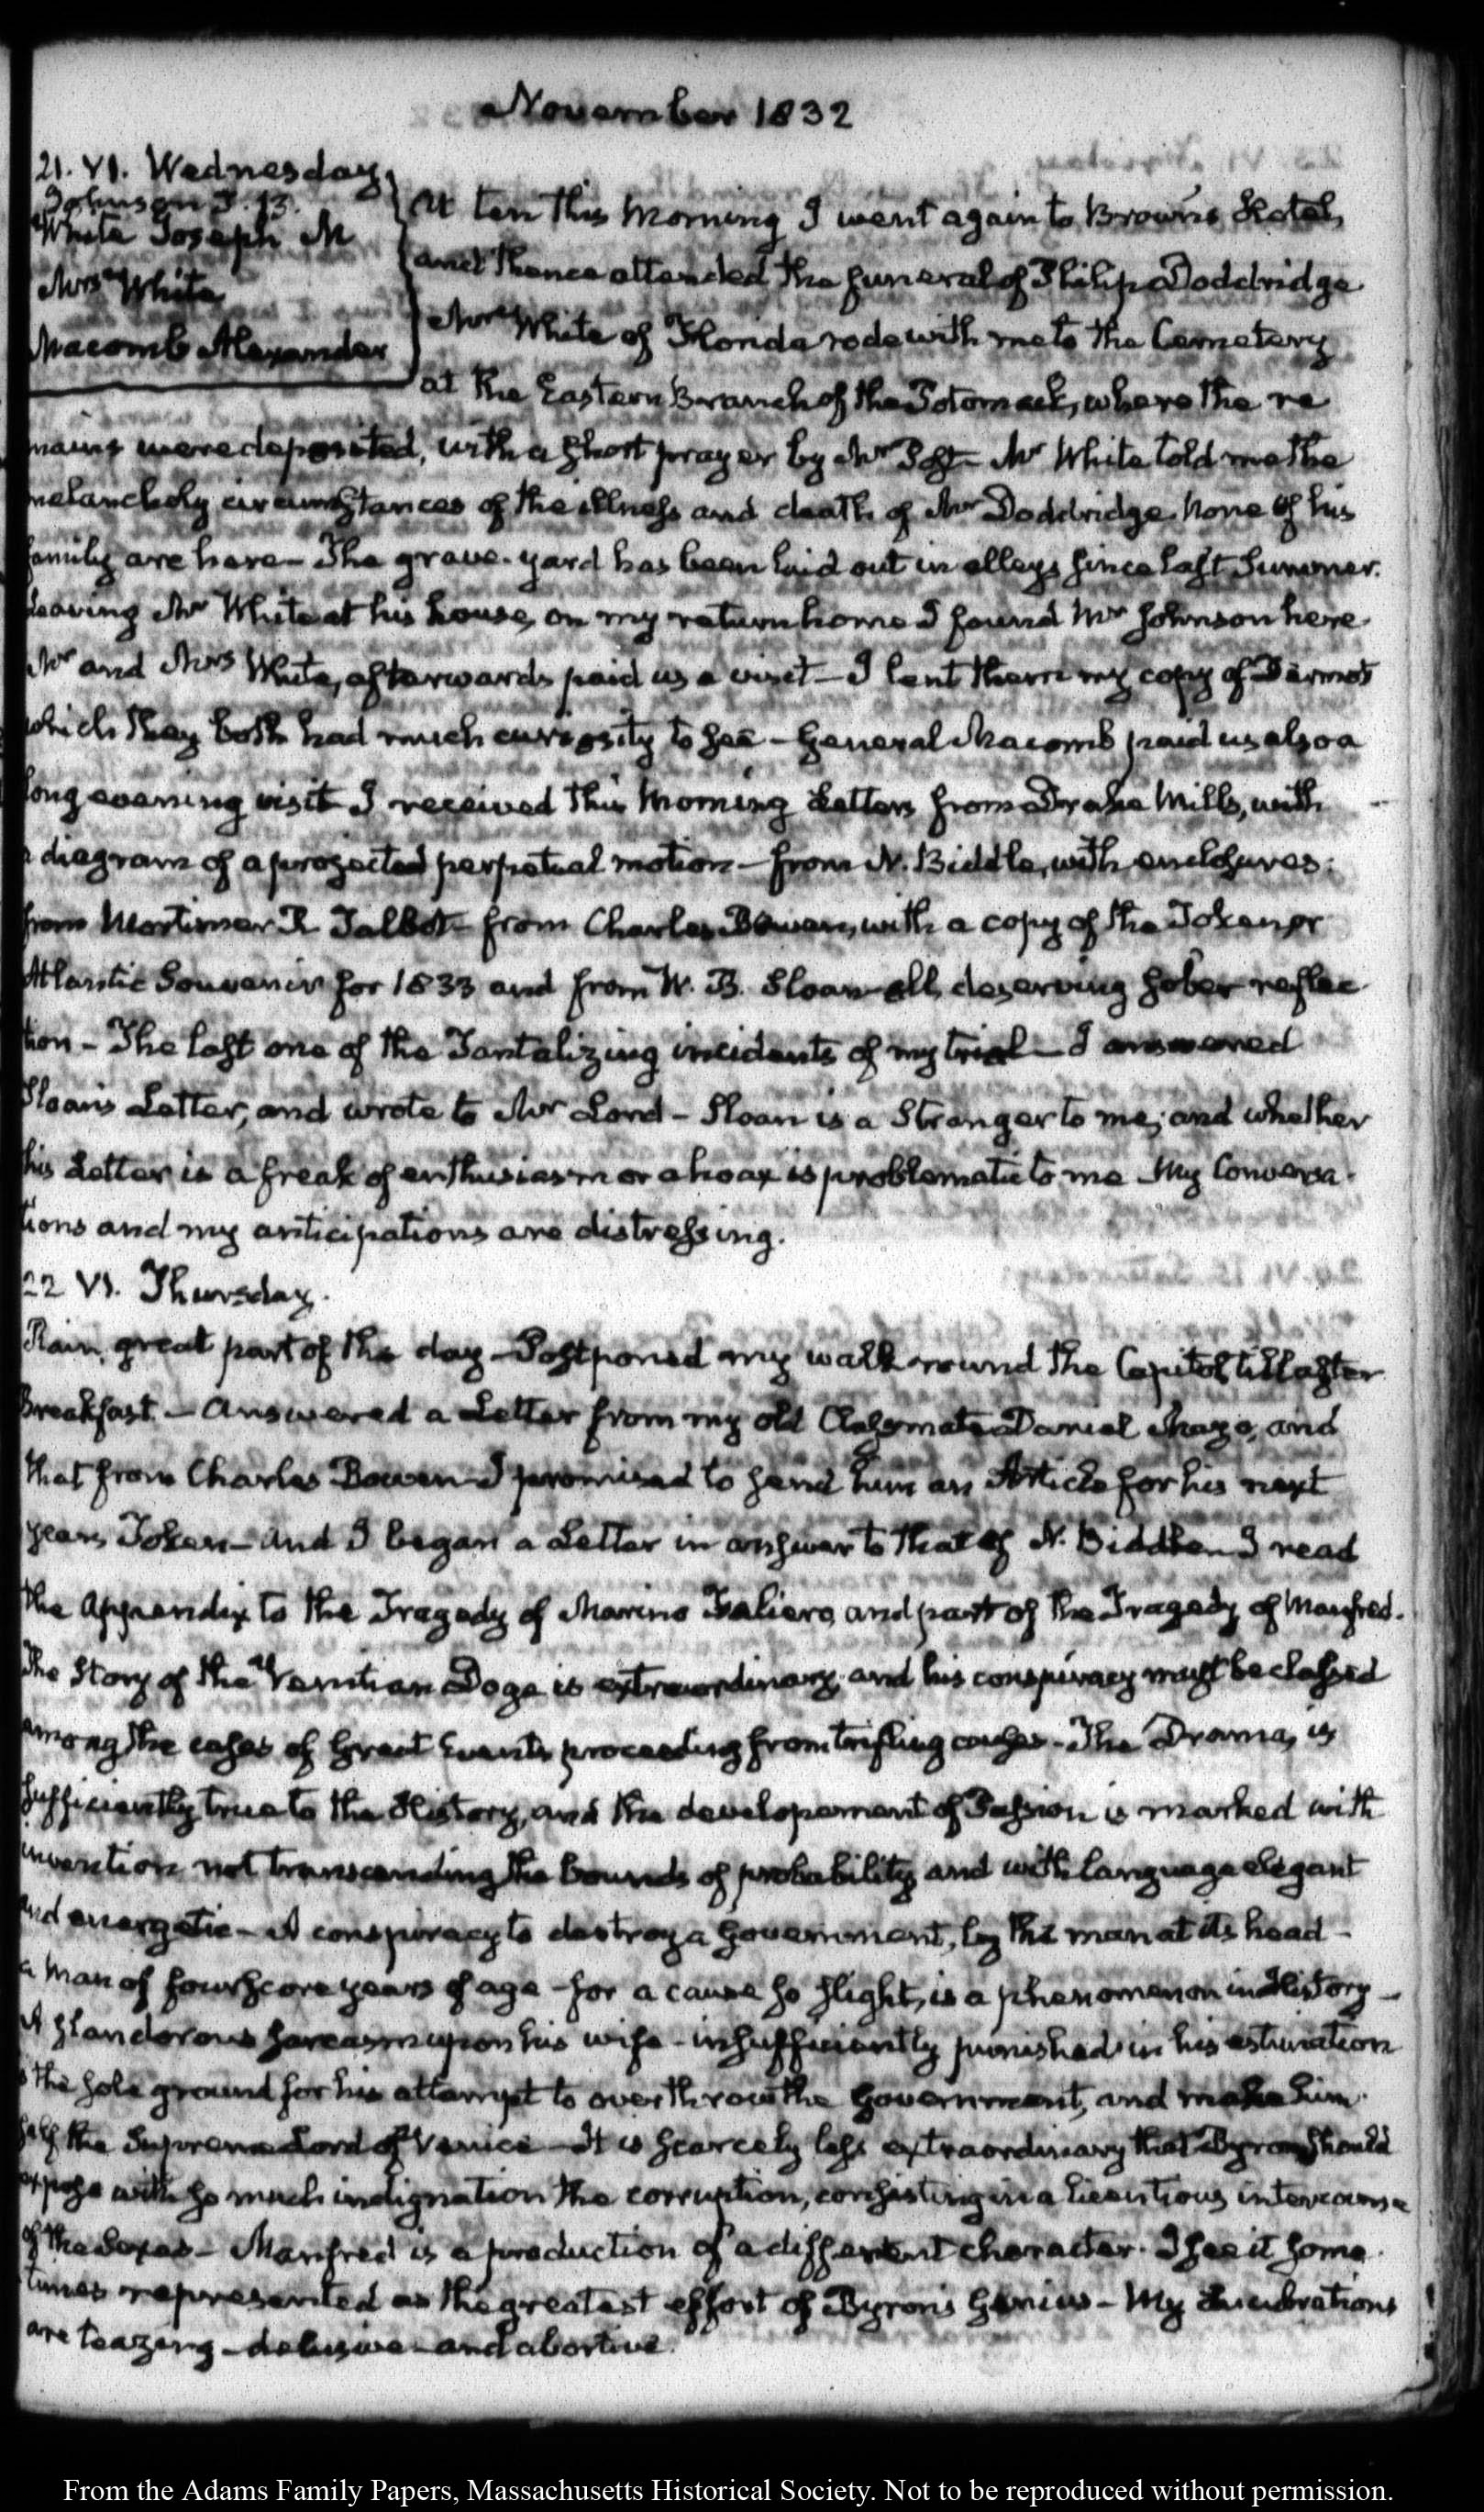 November 1832
21. VI. Wednesday.
Johnson J. B.
White Joseph M
Mrs. White
Macomb Alexander
At ten this Morning I went again to Brown's Hotel,
and thence attended the funeral of Philip Doddridge
Mr White of Florida rode with me to the Cemetery
at the Eastern Branch of the Potomack, where the re
mains were deposited, with a short prayer by Mr Post – Mr White told me the
melancholy circumstances of the illness and death of Mr Doddridge. None of his
family are here – The grave-yard has been laid out in alleys since last Summer.
Leaving Mr White at his house, on my return home I found Mr Johnson here
Mr and Mrs White, afterwards paid us a visit – I lent them my copy of Dermot
which they both had much curiosity to see – General Macomb paid us also a
long evening visit I received this Morning Letters from Drake Mills, with
a diagram of a projected perpetual motion – from N. Biddle, with enclosures.
from Mortimer R Talbot – from Charles Bowen, with a copy of the Token or
Atlantic Souvenir for 1833 and from W. B. Sloan – all, deserving sober reflec
tion – The last one of the Tantalizing incidents of my trial – I answered
Sloan's Letter, and wrote to Mr Lord – Sloan is a Stranger to me; and whether
his Letter is a freak of enthusiasm or a hoax is problematic to me My Conversa-
tions and my anticipations are distressing.
22 VI. Thursday.
Rain, great part of the day – Postponed my walk round the Capitol till after
Breakfast. – Answered a Letter from my old Classmate Daniel Mayo, and
that from Charles Bowen – I promised to send him an Article for his next
years Token – and I began a Letter in answer to that of N. Biddle – I read
the Appendix to the Tragedy of Marino Faliero, and part of the Tragedy of Manfred.
The Story of the Venitian Doge is extraordinary, and his conspiracy must be classed
among the cases of Great Events proceeding from trifling causes – The Drama, is
sufficiently true to the History, and the developement of Passion is marked with
invention not transcending the bounds of probability, and with language elegant
and energetic – A conspiracy to destroy a Government, by the man at its head –
a Man of fourscore years of age – for a cause so slight, is a phenomenon in History –
A slanderous sarcasm upon his wife – insufficiently punished in his estimation
is the sole ground for his attempt to overthrow the Government, and make him-
self the Supreme Lord of Venice – It is scarcely less extraordinary that Byron should
expose with so much indignation the corruption, consisting in a licentious intercourse
of the Sexes – Manfred is a production of a different character. I see it some-
times represented as the greatest effort of Byron's Genius – My Lucubrations
are teazing – delusive – and abortive.
From the Adams Family Papers, Massachusetts Historical Society. Not to be reproduced without permission.